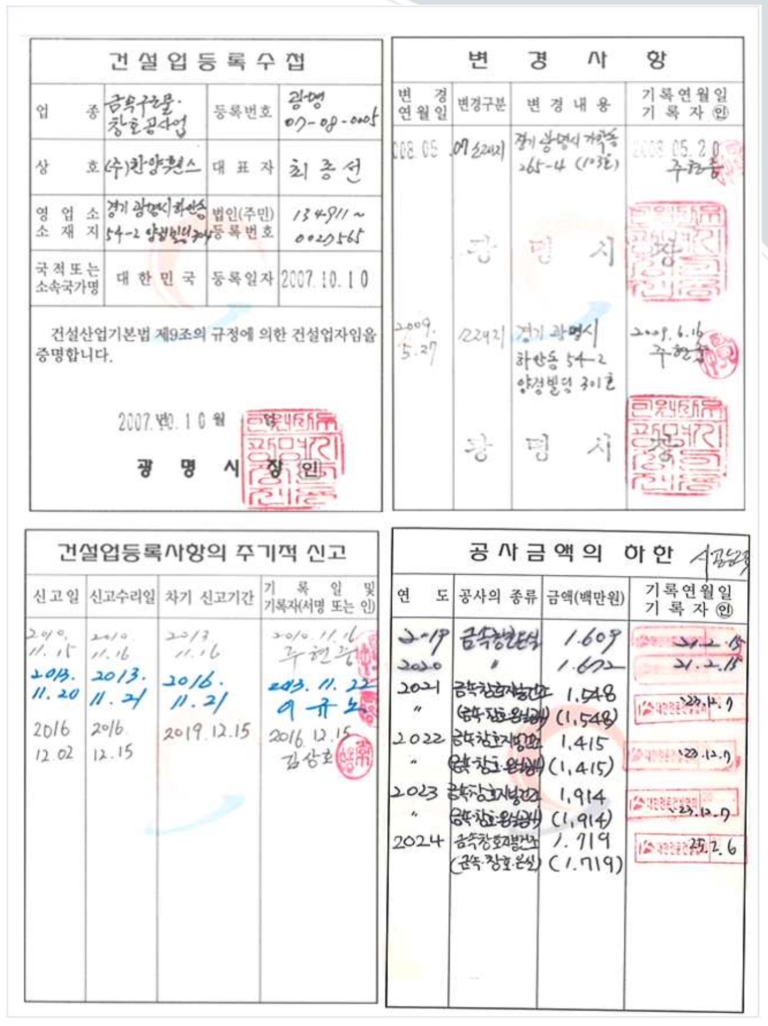 건설업등록수첩
업 종 금속구조물·창호공사업 등록번호 광명 07-08-0005
상 호 (주)한양휀스 대 표 자 최종선
영 업 소 소 재 지 경기 광명시 하안동 54-2 양정빌딩 법인(주민)등록번호 134911~0027565
국적 또는 소속국가명 대 한 민 국 등록일자 2007.10.10
건설산업기본법 제9조의 규정에 의한 건설업자임을
증명합니다.
2007.년 10.10 월 일
광 명 시 장 인
변 경 사 항
변 경 연월일 변경구분 변 경 내 용 기록연월일 기 록 자 인
008.05.07 소재지 경기 광명시 가학동 265-4 (103호) 2008.05.20
광 명 시 장
2009. 5.27 소재지 경기 광명시 하안동 54-2 양정빌딩 301호 2009.6.16
광 명 시 장
건설업등록사항의 주기적 신고
신고일 신고수리일 차기 신고기간 기 록 일 및 기록자(서명 또는 인)
2010. 11.15 2010. 11.16 2013 11.16 2010.11.16
2013. 11.20 2013. 11.21 2016. 11.21 2013.11.22
2016 12.02 2016. 12.15 2019.12.15 2016.12.15 김상호
공사금액의 하한
연 도 공사의 종류 금액(백만원) 기록연월일 기 록 자 인
2-19 1.609 21.2.15
2020 〃 1.672 21.2.15
2021 1,548 23.12.7
〃 (1,548)
2022 1,415 23.12.7
〃 (1,415)
2023 1,914 23.12.7
〃 (1,914)
2024 1.719 25.2.6
(금속·창호·온실) (1.719)